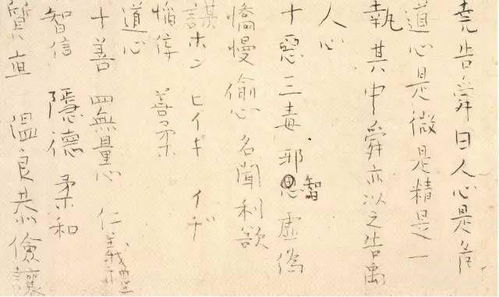 堯告舜曰人心是危
道心是微是精是一
執其中舜亦以之告禹
人心
十惡三毒邪智虛偽
憍慢偷心名聞利欲
謀ホンヒイギ イヂ
善柔
道心
十善四無量心 仁義禮
智信 隱德 柔和
質直 溫良恭儉讓